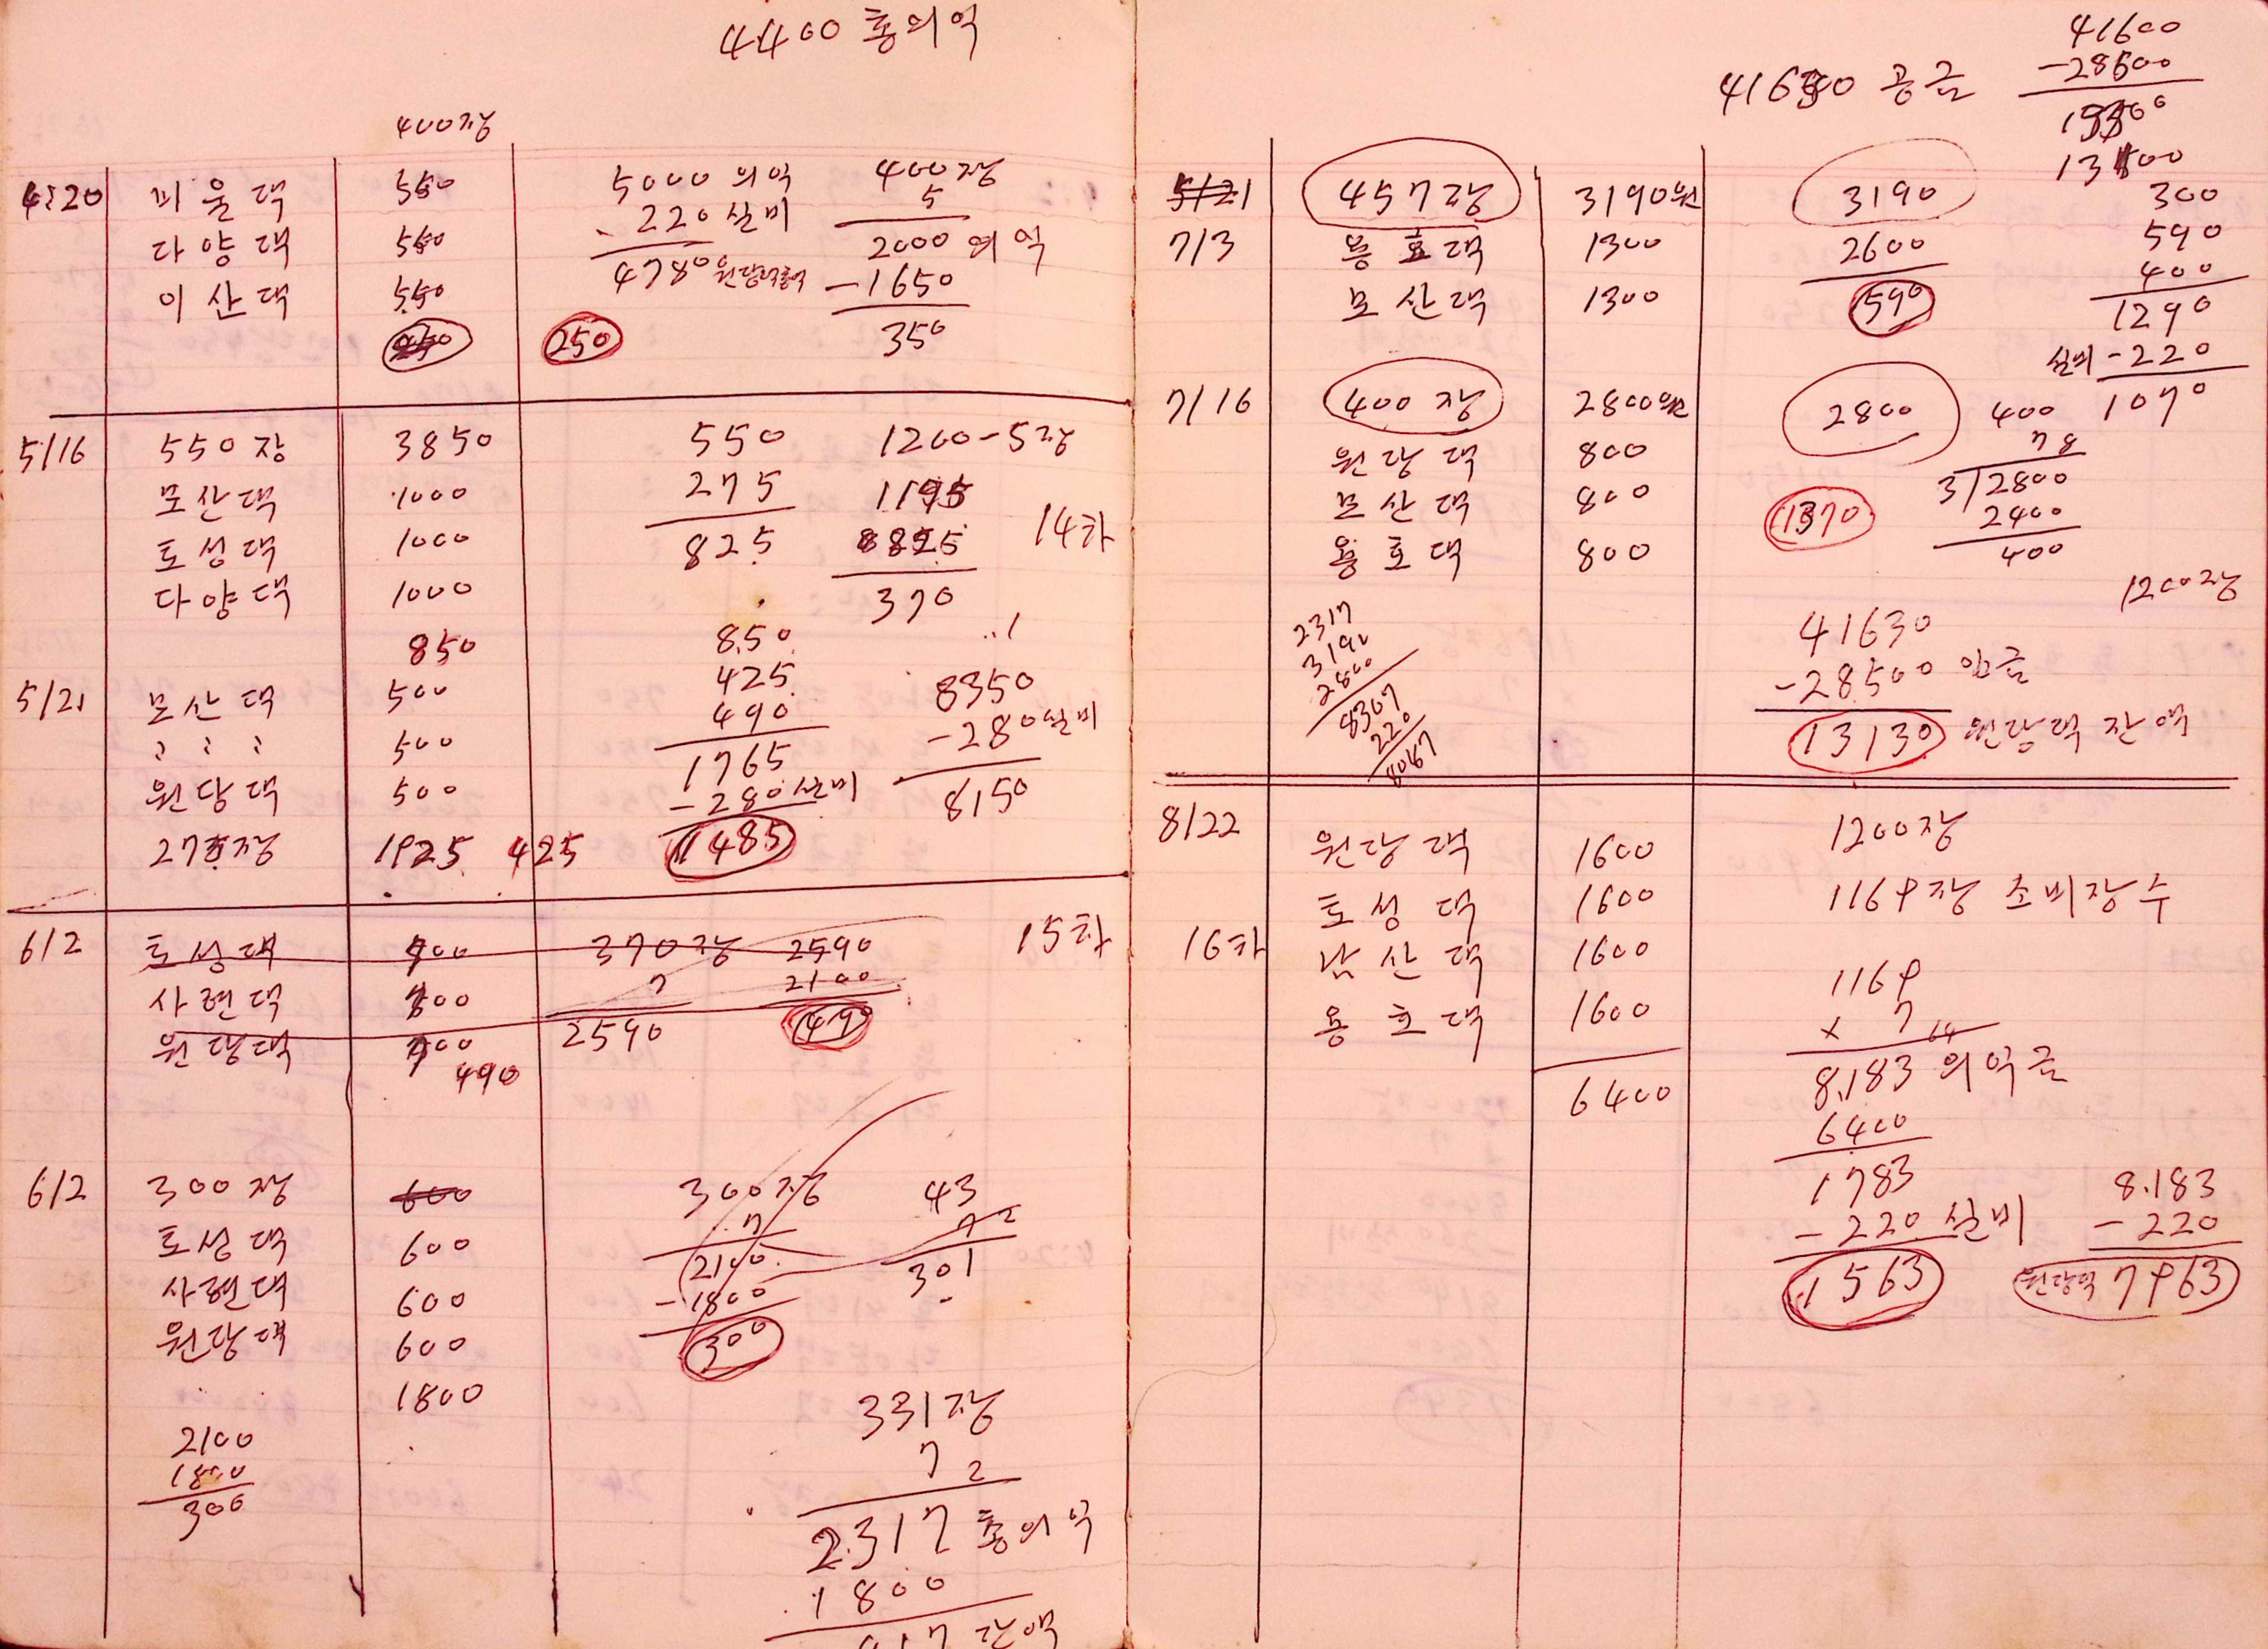 4400 총의억
400장
4:20 미울댁 550 5000 의억 400장
다양댁 550 220 실비 5
이산댁 550 4780 2000 의억
-1650
250 350
5/16 550장 3850 550 1200-5장
모산댁 1000 275 1195
토성댁 1000 825 8825 14차
다양댁 1000 370
850 850
5/21 모산댁 500 425 8350
〃 〃 〃 500 490 -280 실비
원당댁 500 1765 8150
-280 실비
275장 1925 425 1485
6/2 토성댁 700 370장 2590 15차
사현댁 700 7 2100
원당댁 700 2590 490
490
6/2 300장 600 300장 43
토성댁 600 7 72
사현댁 600 2100 301
원당댁 600 -1800
1800 300
2100 331장
1800 7 2
300 2317 총의억
1800
517 잔액
41600
41630 공금 -28500
13100
5/21 457장 3190원 3190 300
7/3 용호댁 1300 2600 590
모산댁 1300 590 400
1290
실비 -220
7/16 400장 2800원 2800 400 1070
원당댁 800 78
모산댁 800 1370 3/2800
용호댁 800 2400
400
1200장
2317 41630
3190 -28500 입금
2800 13130 원당댁 잔액
8307
220
8067
8/22 원당댁 1600 1200장
토성댁 1600 1169장 소비장수
16차 남산댁 1600 1169
용호댁 1600 x 7 64
6400 8,183 의억금
6400
1783 8.183
-220 실비 -220
1563 원당댁 7963